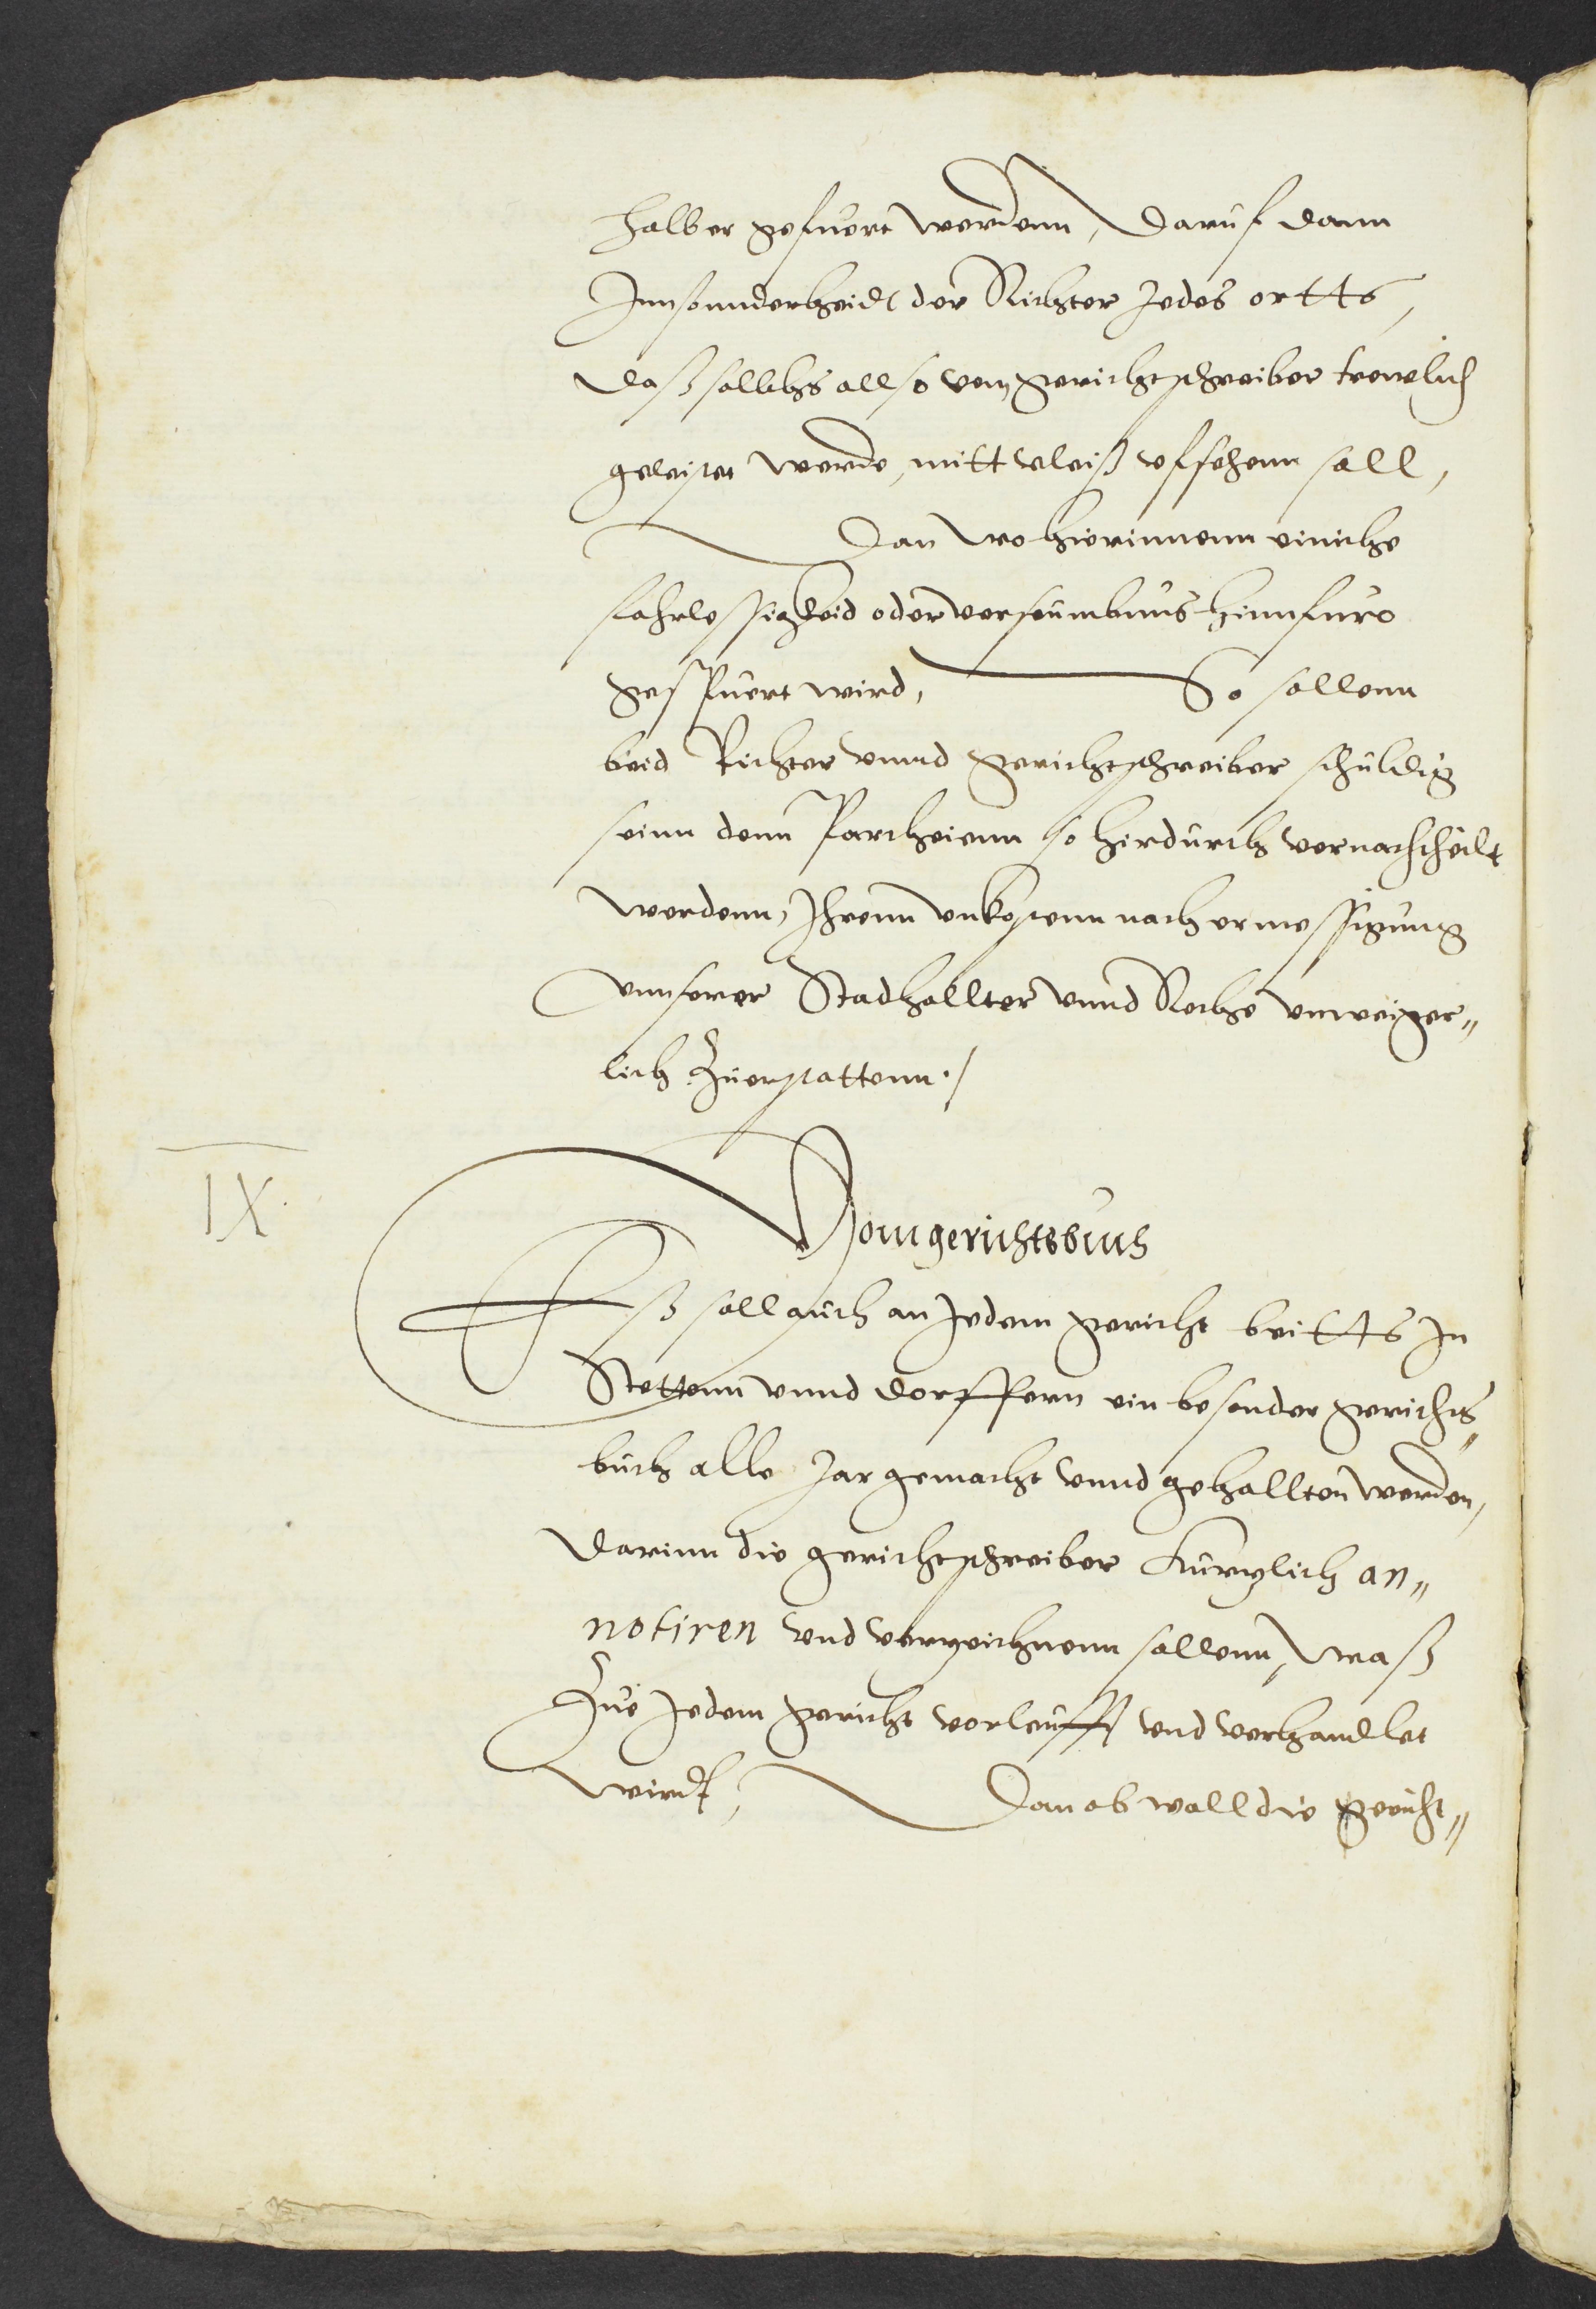 halber gefuert werdenn, Daruf dann
Innsonnderheidt der Richter Jedes ortts,
Daß sollichs allso vom gerichtschreiber trewlich
geleistet werde, mitt vleiß vffsehenn soll,
Dan wo hierinnenn einiche
fahrlessigkeid oder verseumbnus hinnfuro
gespuert wird, So sollenn
beid Richter vnnd gerichtschreiber schuldig
seinn denn Partheienn so hirdurch vernachtheilt
werdenn, Ihrenn vnkostenn nach ermessigung
vnnserer Stadhallter vnnd Rethe vnweiger„
lich Zuerstattenn./
IX.
Vom gerichtsbuch
Eß soll auch an Jedem gericht beitts In
Stettenn vnnd dorffern ein besonder gerichts„
buch alle Jar gemacht vnnd gehallten werden,
Darinn die gerichtschreiber kurtzlich an„
notiren vnd verzeichnenn sollenn, waß
Zue Jedem gericht vorleufft vnd verhandlet
wirdt, Dan ob woll die gericht„